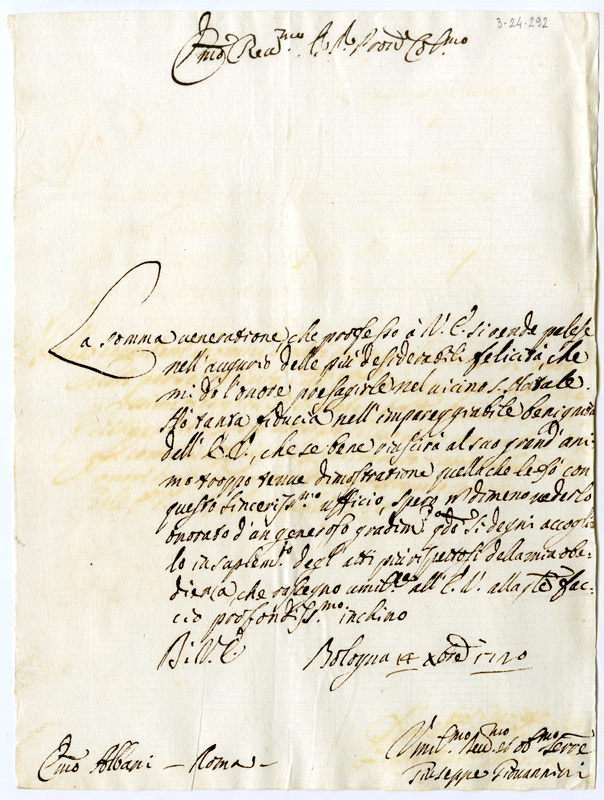 3-24-292
Emo e Reu.mo Sr. Sr. Pron Col.mo
La somma ueneratione, che professo à V. E. si rende palese
nell'augurio delle più desiderabili felicità, che
mi dò l'onore presagirle nel uicino S. Natale.
Hò tanta fiducia nell'impareggiabile benignità
dell'E. V., che se bene riuscirà al suo grand'ani-
mo troppo tenue dimostratione quella che le fò con
questo sinceriss.mo ufficio, spero nōdimeno uederlo
onorato d'un generoso gradim.to qdo si degni accoglier-
lo in suplem.to degl'atti più rispettosi della mia obe-
dienza, che rassegno umil.te all'E. V. alla qle fac-
cio profondiss.mo inchino
Di V. E.
Bologna 14 Xbre 1720
Umil.mo Deu.mo et Ob.mo Serre
Emo Albani - Roma -
Giuseppe Giouannini